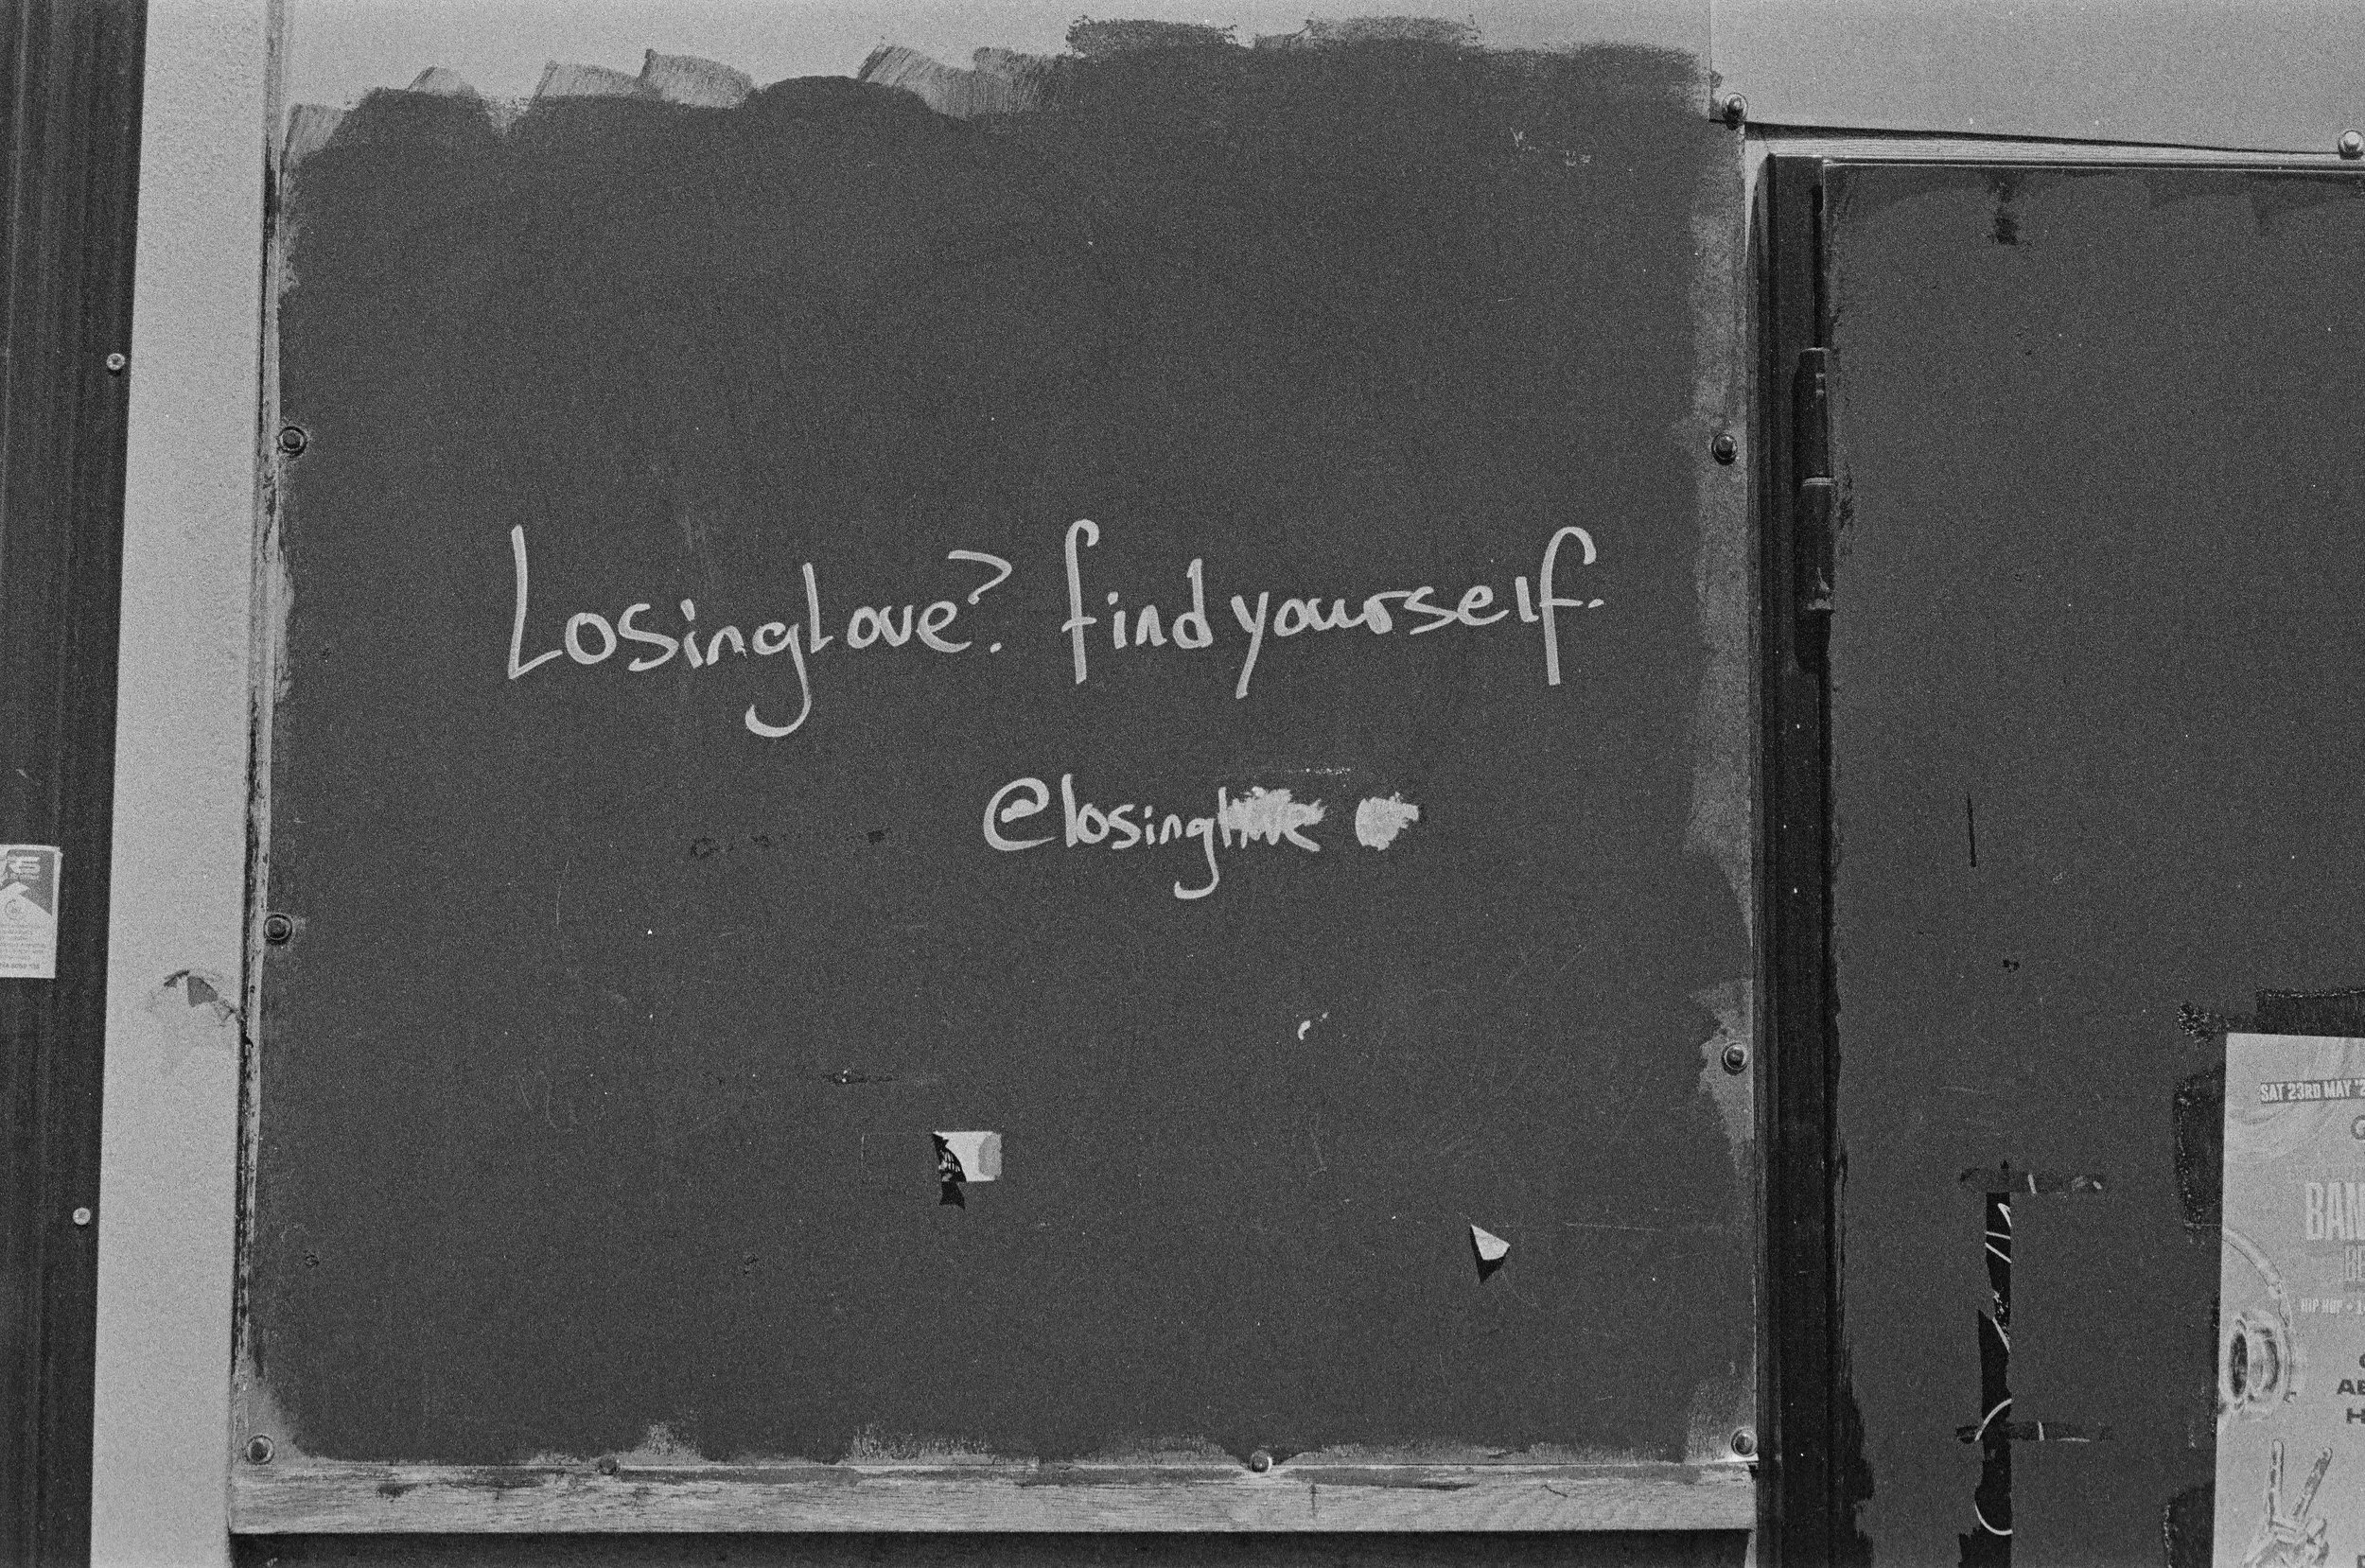 Losinglove? findyourself.
@losing
SAT 23RD MAY
HIP HOP